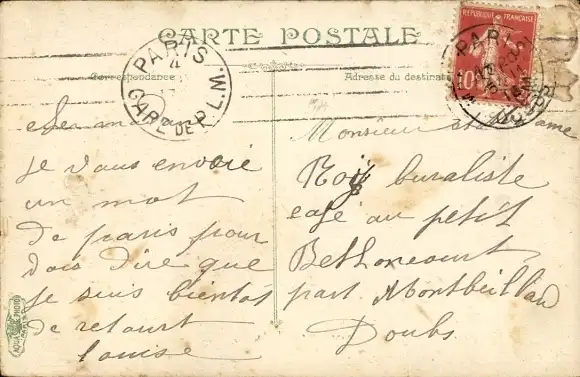 CARTE POSTALE
Correspondance
Adresse du destinataire
RÉPUBLIQUE FRANÇAISE
10
PARIS
GARE DE P.L.M.
PARIS
je vous envoie
un mot
de paris pour
vous dire que
je suis bientot
de retourt
Louise
Monsieur et Madame
Roy buraliste
café au petit
Bethoncourt
part Montbeillard
Doubs